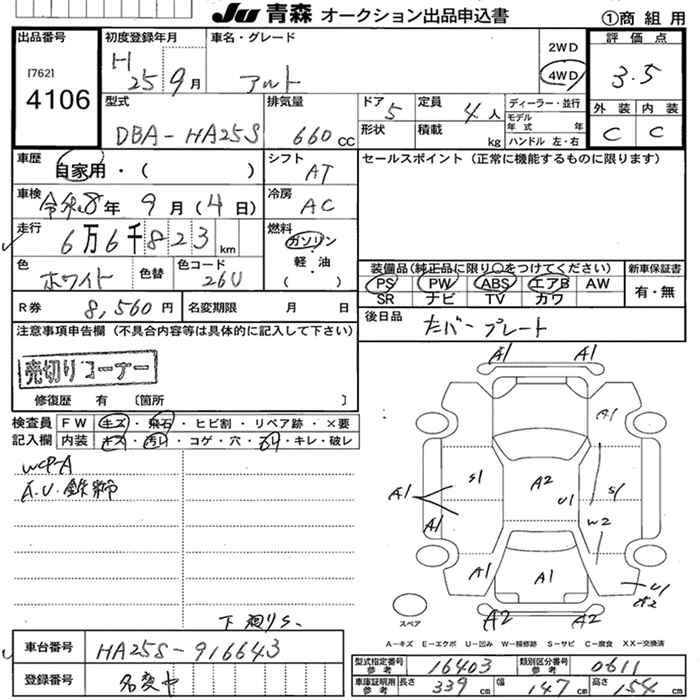 JU 青森 オークション出品申込書 ①商組用
出品番号 初度登録年月 車名・グレード 評価点
[762] H 25 9月 アルト 2WD 3.5
4106 4WD
型式 排気量 ドア 定員 ディーラー・並行 外装 内装
DBA-HA25S 660cc 5 4人 モデル年式 年 C C
形状 積載 kg ハンドル 左・右
車歴 自家用・( ) シフト AT セールスポイント (正常に機能するものに限ります)
車検 令和8年 9月(4日) 冷房 AC
走行 6万6千823km 燃料 ガソリン
軽・油
( )
色 ホワイト 色替 色コード 26U 装備品(純正品に限り○をつけてください) 新車保証書
PS PW ABS エアB AW 有・無
SR ナビ TV カワ
R券 8,560円 名変期限 月 日 後日品
注意事項申告欄 (不具合内容等は具体的に記入して下さい) たバープレート
売切りコーナー
修復歴 有 〔箇所 〕
検査員 FW キズ・飛石・ヒビ割・リペア跡・×要
記入欄 内装 キズ・汚れ・コゲ・穴・キレ・破レ
WCP-A
A1 A1
A1
S1 A2 U1 S1
A1 A1 W2
A1 A1 U1
A2 A2
スペア
下廻りS、
A-キズ E-エクボ U-凹み W-補修跡 S-サビ C-腐食 XX-交換済
車台番号 HA25S-916643 型式指定番号 参考 16403 類別区分番号 参考 0611
登録番号 名変中 車庫証明用 参考 長さ 339cm 幅 147cm 高さ 154cm